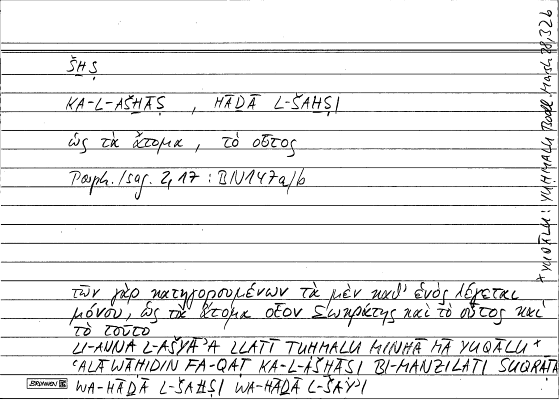 ŠḪṢ
KA-L-AŠḪĀṢ , HĀḎĀ L-ŠAḪṢI
ὡς τὰ ἄτομα , τὸ οὗτος
Porph. Isag. 2, 17 : BN 147a/b
τῶν γὰρ κατηγορουμένων τὰ μὲν καθ' ἑνὸς λέγεται
μόνου, ὡς τὰ ἄτομα οἷον Σωκράτης καὶ τὸ οὗτος καὶ
τὸ τοῦτο
LI-ANNA L-AŠYĀ'A LLATĪ TUḤMALU MINHĀ MĀ YUQĀLU *
'ALĀ WĀḤIDIN FA-QAṬ KA-L-AŠḪĀṢI BI-MANZILATI SUQRĀṬA
WA-HĀḎĀ L-ŠAḪṢI WA-HĀḎĀ L-ŠAY'I
* YUQĀLU : YUḤMALU Bodl. Marsh 28, 32b
BRUNNEN